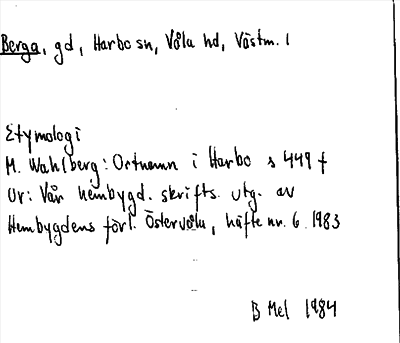 Berga, gd, Harbo sn, Våla hd, Västm. l
Etymologi
M. Wahlberg: Ortnamn i Harbo s 449 f
Ur: Vår hembygd. skrifts. utg. av
Hembygdens förl. Östervåla, häfte nr. 6. 1983
B Mel 1984